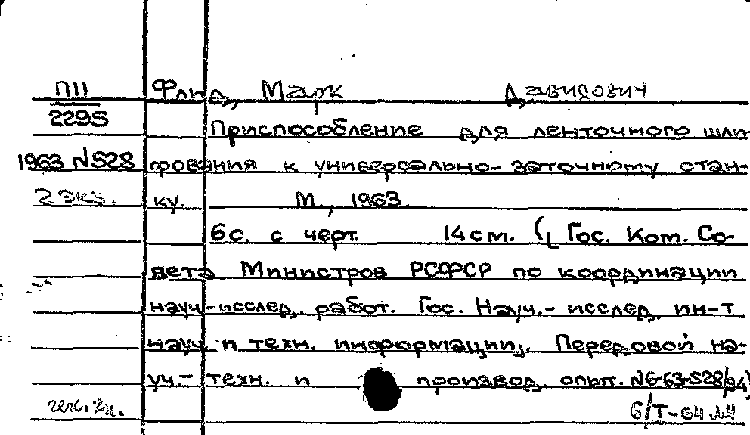 П11 Флид, Марк Давидович
2295
Приспособление для ленточного шли
1963 №528 фования к универсально-заточному стан-
2 экз. ку. М., 1963
6с. с черт. 14см. (Гос. Ком. Со-
вета Министров РСФСР по координации
науч-исслед. работ. Гос. Науч.-исслед. ин-т
науч. и техн. информации. Передовой на-
уч.-техн. и производ. опыт. №6-63-528/
6/Т-64